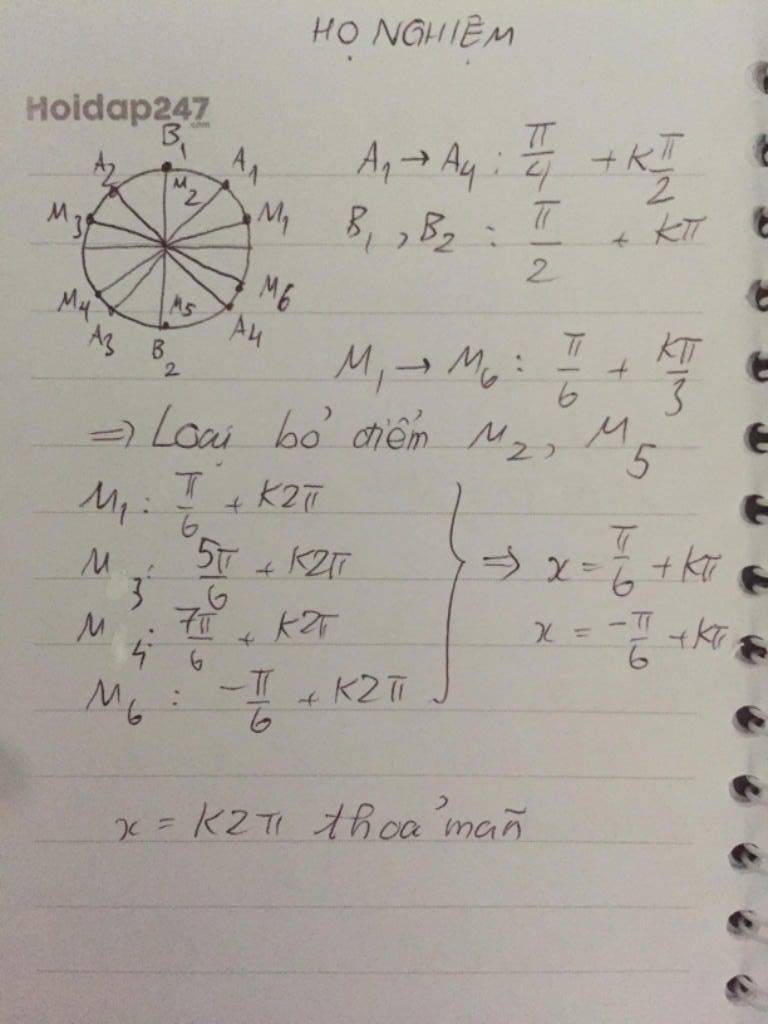 HỌ NGHIỆM
Hoidap247
.com
B₁
A₂ M₂ A₁
M₃ M₁
M₄ M₅ M₆
A₃ B₂ A₄
A₁ → A₄ : π/4 + Kπ/2
B₁, B₂ : π/2 + Kπ
M₁ → M₆ : π/6 + Kπ/3
=> Loại bỏ điểm M₂, M₅
M₁ : π/6 + K2π
M₃ : 5π/6 + K2π
M₄ : 7π/6 + K2π
M₆ : -π/6 + K2π
} => x = π/6 + Kπ
x = -π/6 + Kπ
x = K2π thoả mãn